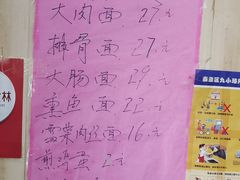 大肉面 27.元
排骨面 27.元
大肠面 29.元
熏鱼面 22元
雪菜肉丝面 16.元
煎鸡蛋 2元
林